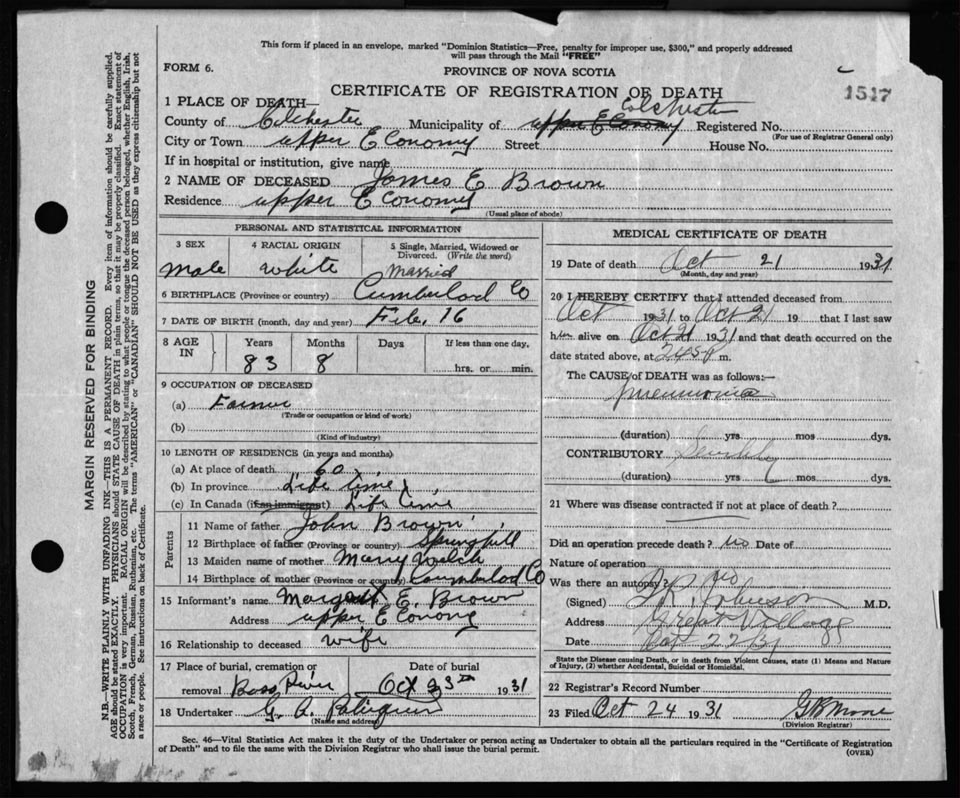 This form if placed in an envelope, marked "Dominion Statistics—Free, penalty for improper use, $300," and properly addressed
will pass through the Mail "FREE"
FORM 6.
PROVINCE OF NOVA SCOTIA
CERTIFICATE OF REGISTRATION OF DEATH
1517
1 PLACE OF DEATH—
County of Colchester Municipality of upper Economy Colchester Registered No.
(For use of Registrar General only)
City or Town upper Economy Street House No.
If in hospital or institution, give name
2 NAME OF DECEASED James E Brown
Residence upper Economy
(Usual place of abode)
PERSONAL AND STATISTICAL INFORMATION
3 SEX 4 RACIAL ORIGIN 5 Single, Married, Widowed or Divorced. (Write the word)
male white married
6 BIRTHPLACE (Province or country) Cumberlad Co
7 DATE OF BIRTH (month, day and year) Feb. 16
8 AGE IN Years Months Days If less than one day,
83 8 hrs. or min.
9 OCCUPATION OF DECEASED
(a) Farmer
(Trade or occupation or kind of work)
(b)
(Kind of industry)
10 LENGTH OF RESIDENCE (in years and months)
(a) At place of death 60
(b) In province Life time
(c) In Canada (if an immigrant) Life time
Parents
11 Name of father John Brown
12 Birthplace of father (Province or country) Springhill
13 Maiden name of mother Mary Welch
14 Birthplace of mother (Province or country) Cumberlad Co
15 Informant's name Margaret E. Brown
Address upper Econony
16 Relationship to deceased wife
17 Place of burial, cremation or removal Bass River Date of burial Oct 23rd 1931
18 Undertaker G. A.
(Name and address)
MEDICAL CERTIFICATE OF DEATH
19 Date of death Oct 21 1931
(Month, day and year)
20 I HEREBY CERTIFY that I attended deceased from
Oct 1931 to Oct 21 19 that I last saw
him alive on Oct 21 1931 and that death occurred on the
date stated above, at 2.45 P m.
The CAUSE of DEATH was as follows:—
pneumonia
(duration) yrs. mos. dys.
CONTRIBUTORY
(duration) yrs. mos. dys.
21 Where was disease contracted if not at place of death?
Did an operation precede death? no Date of
Nature of operation
Was there an autopsy? no
(Signed) Johnson M.D.
Address Great Village
Date Oct 22/31
State the Disease causing Death, or in death from Violent Causes, state (1) Means and Nature
of Injury, (2) whether Accidental, Suicidal or Homicidal.
22 Registrar's Record Number
23 Filed Oct 24 1931 G B Moore
(Division Registrar)
Sec. 46—Vital Statistics Act makes it the duty of the Undertaker or person acting as Undertaker to obtain all the particulars required in the "Certificate of Registration
of Death" and to file the same with the Division Registrar who shall issue the burial permit.
(OVER)
MARGIN RESERVED FOR BINDING
N.B.—WRITE PLAINLY WITH UNFADING INK—THIS IS A PERMANENT RECORD. Every item of information should be carefully supplied.
AGE should be stated EXACTLY. PHYSICIANS should STATE CAUSE OF DEATH in plain terms, so that it may be properly classified. Exact statement of
OCCUPATION is very important. RACIAL ORIGIN will be described by stating to what people or tongue the deceased person belonged, whether English, Irish,
Scotch, French, German, Russian, Ruthenian, etc. The terms "AMERICAN" or "CANADIAN" SHOULD NOT BE USED as they express citizenship but not
a race or people. See instructions on back of Certificate.